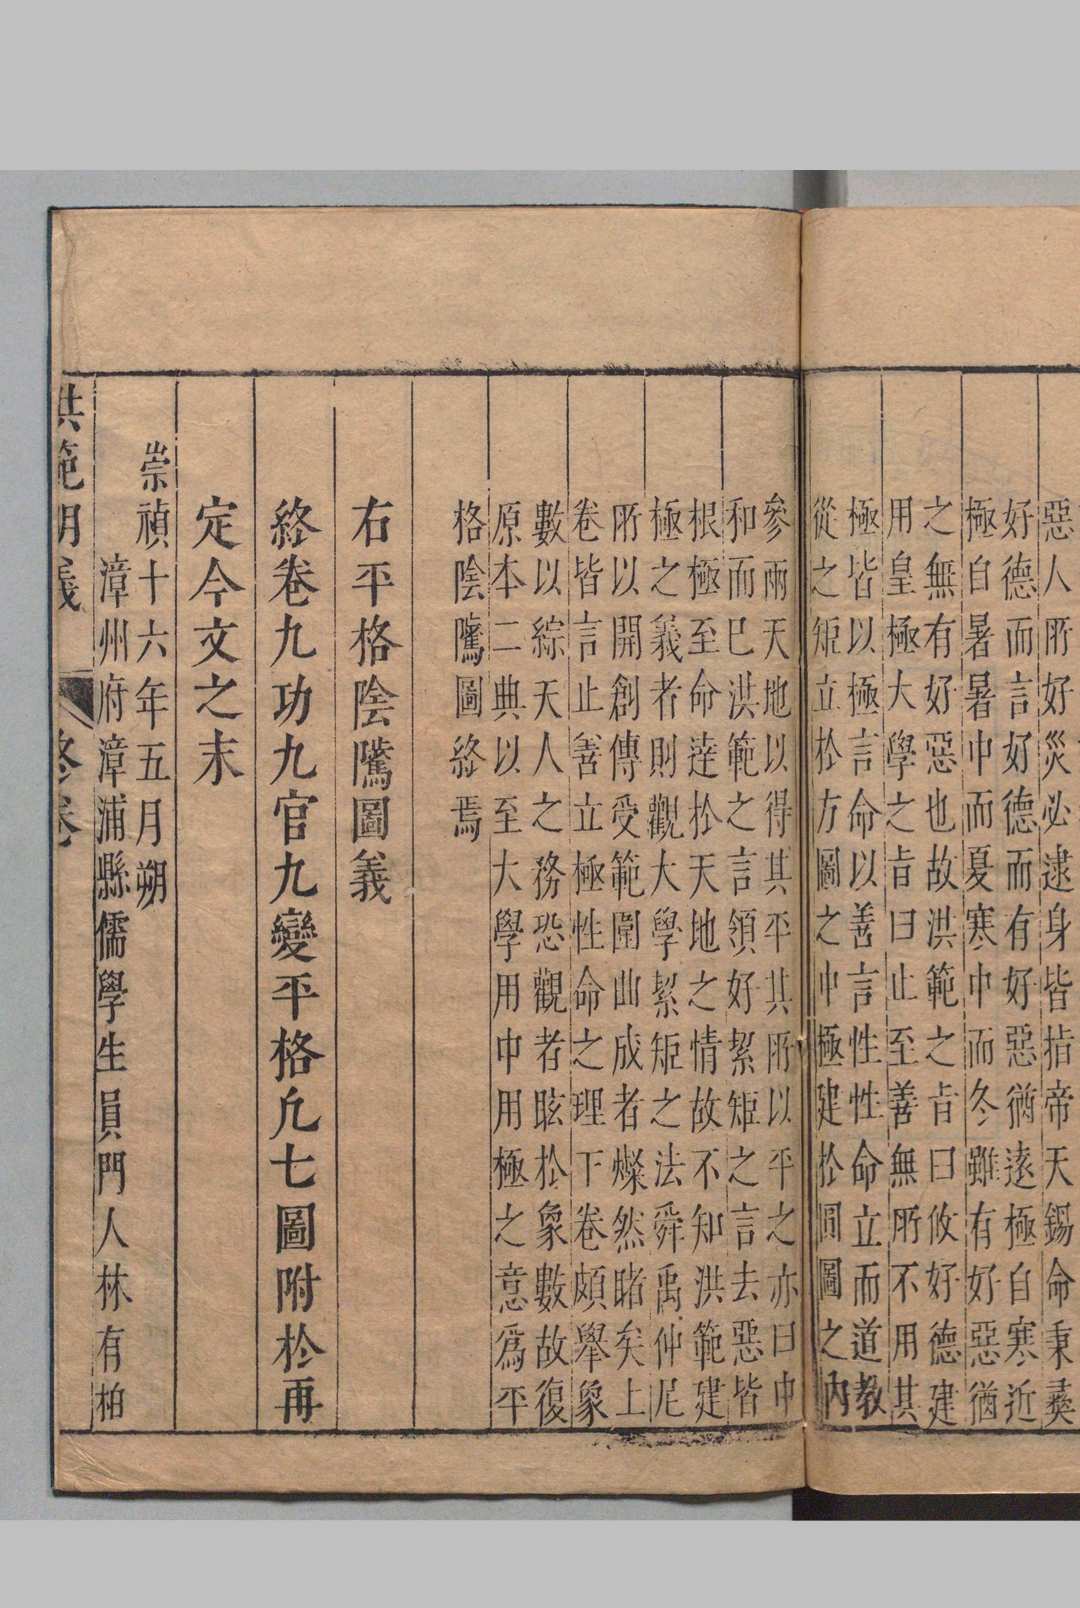 惡人所好災必逮身皆指帝天錫命秉彞
好德而言好德而有好惡猶遠極自寒近
極自暑暑中而夏寒中而冬雖有好惡猶
之無有好惡也故洪範之旨曰攸好德建
用皇極大學之旨曰止至善無所不用其
極皆以極言命以善言性性命立而道教
從之矩立於方圖之中極建於圓圖之內
參兩天地以得其平其所以平之亦曰中
和而已洪範之言領好絜矩之言去惡皆
根極至命達於天地之情故不知洪範建
極之義者則觀大學絜矩之法舜禹仲尼
所以開創傳受範圍曲成者燦然睹矣上
卷皆言止善立極性命之理下卷頗舉象
數以綜天人之務恐觀者眩於象數故復
原本二典以至大學用中用極之意爲平
格陰騭圖終焉
右平格陰騭圖義
終卷九功九官九變平格凢七圖附於再
定今文之末
崇禎十六年五月朔
漳州府漳浦縣儒學生員門人林有柏
洪範明義
終卷